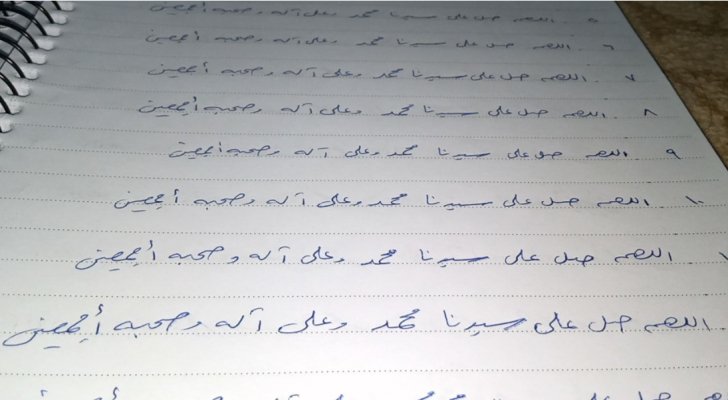 ٥ اللهم صل على سيدنا محمد وعلى آله وصحبه أجمعين
٦ اللهم صل على سيدنا محمد وعلى آله وصحبه أجمعين
٧ اللهم صل على سيدنا محمد وعلى آله وصحبه أجمعين
٨ اللهم صل على سيدنا محمد وعلى آله وصحبه أجمعين
٩ اللهم صل على سيدنا محمد وعلى آله وصحبه أجمعين
١٠ اللهم صل على سيدنا محمد وعلى آله وصحبه أجمعين
١ اللهم صل على سيدنا محمد وعلى آله وصحبه أجمعين
اللهم صل على سيدنا محمد وعلى آله وصحبه أجمعين